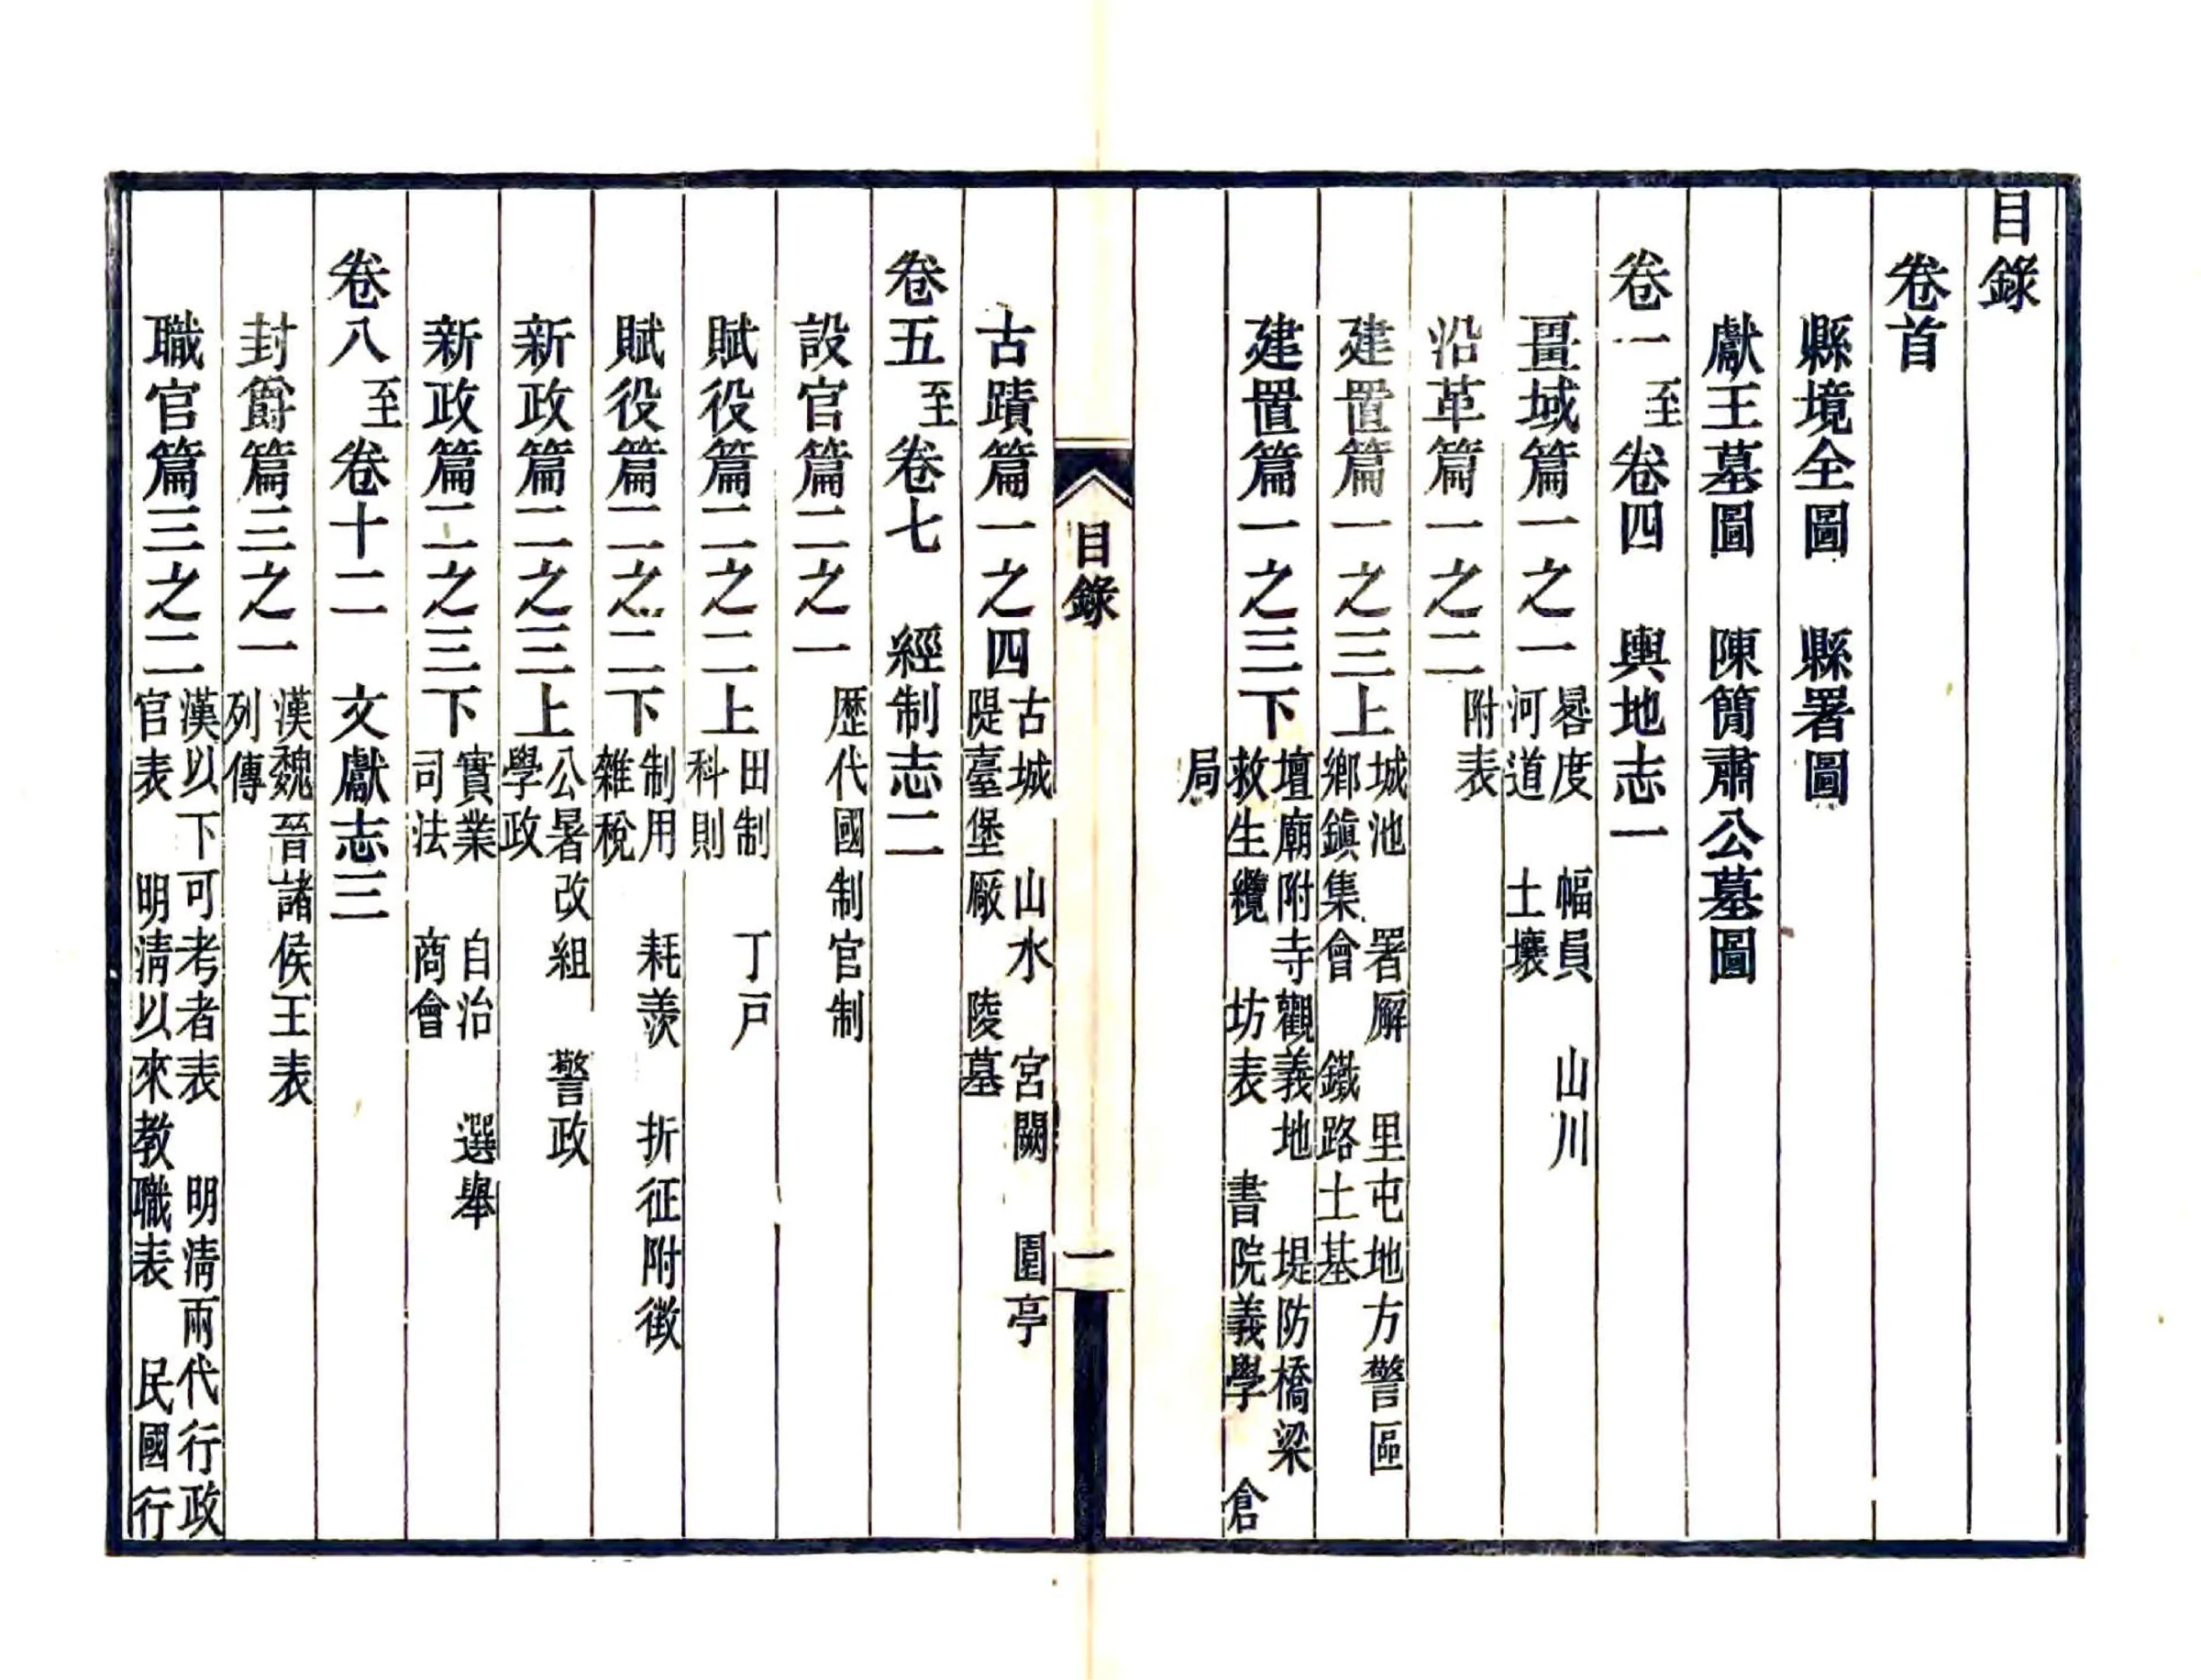 目錄
卷首
縣境全圖　縣署圖
獻王墓圖　陳簡肅公墓圖
卷一至卷四　輿地志一
畺域篇一之一　晷度　幅員　山川
河道　土壤
沿革篇一之二　附表
建置篇一之三上　城池　署廨　里屯地方警區
鄉鎮集會　鐵路土基
建置篇一之三下　壇廟附寺觀義地　堤防橋梁
救生纜　坊表　書院義學　倉
局
目錄
一
古蹟篇一之四　古城　山水　宮闕　園亭
隄臺堡厰　陵墓
卷五至卷七　經制志二
設官篇二之一　歷代國制官制
賦役篇二之二上　田制　丁戸
科則
賦役篇二之二下　制用　耗羨　折征附徵
雜稅
新政篇二之三上　公署改組　警政
學政
新政篇二之三下　實業　自治　選舉
司法　商會
卷八至卷十二　文獻志三
封爵篇三之一　漢魏晉諸侯王表
列傳
職官篇三之二　漢以下可考者表　明淸兩代行政
官表　明淸以來教職表　民國行